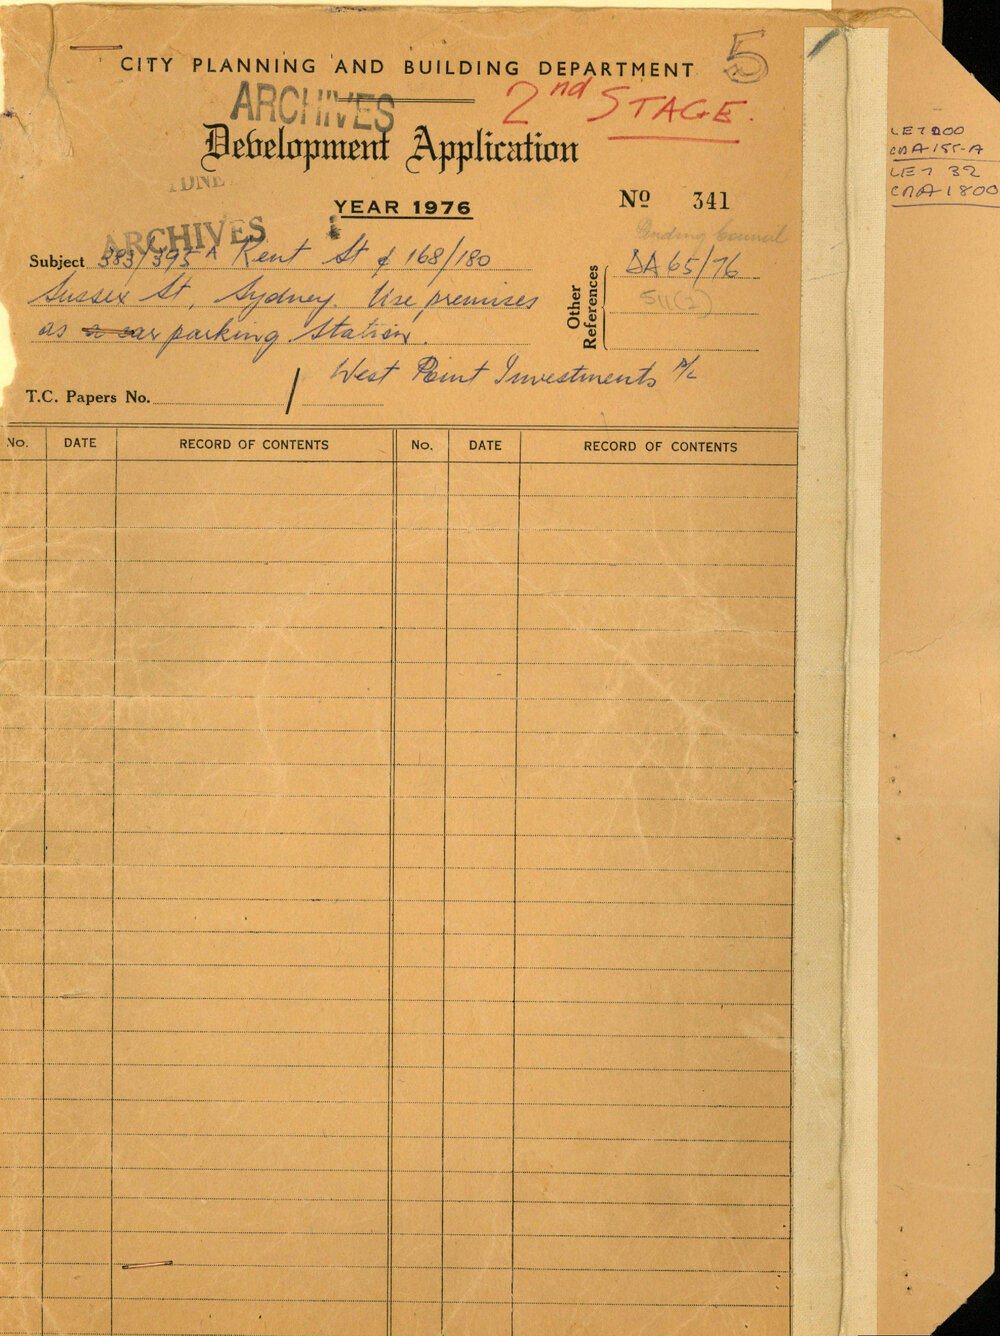 5
CITY PLANNING AND BUILDING DEPARTMENT
ARCHIVES
2nd STAGE.
Development Application
YEAR 1976
Nº 341
ARCHIVES
Pending Council
Subject 383/395A Kent St & 168/180
Sussex St, Sydney. Use premises
as a car parking Station.
West Point Investments P/L
Other References
DA 65/76
511(2)
T.C. Papers No. /
No. DATE RECORD OF CONTENTS No. DATE RECORD OF CONTENTS
LET 200
CNA 155-A
LET 32
CNA 1800